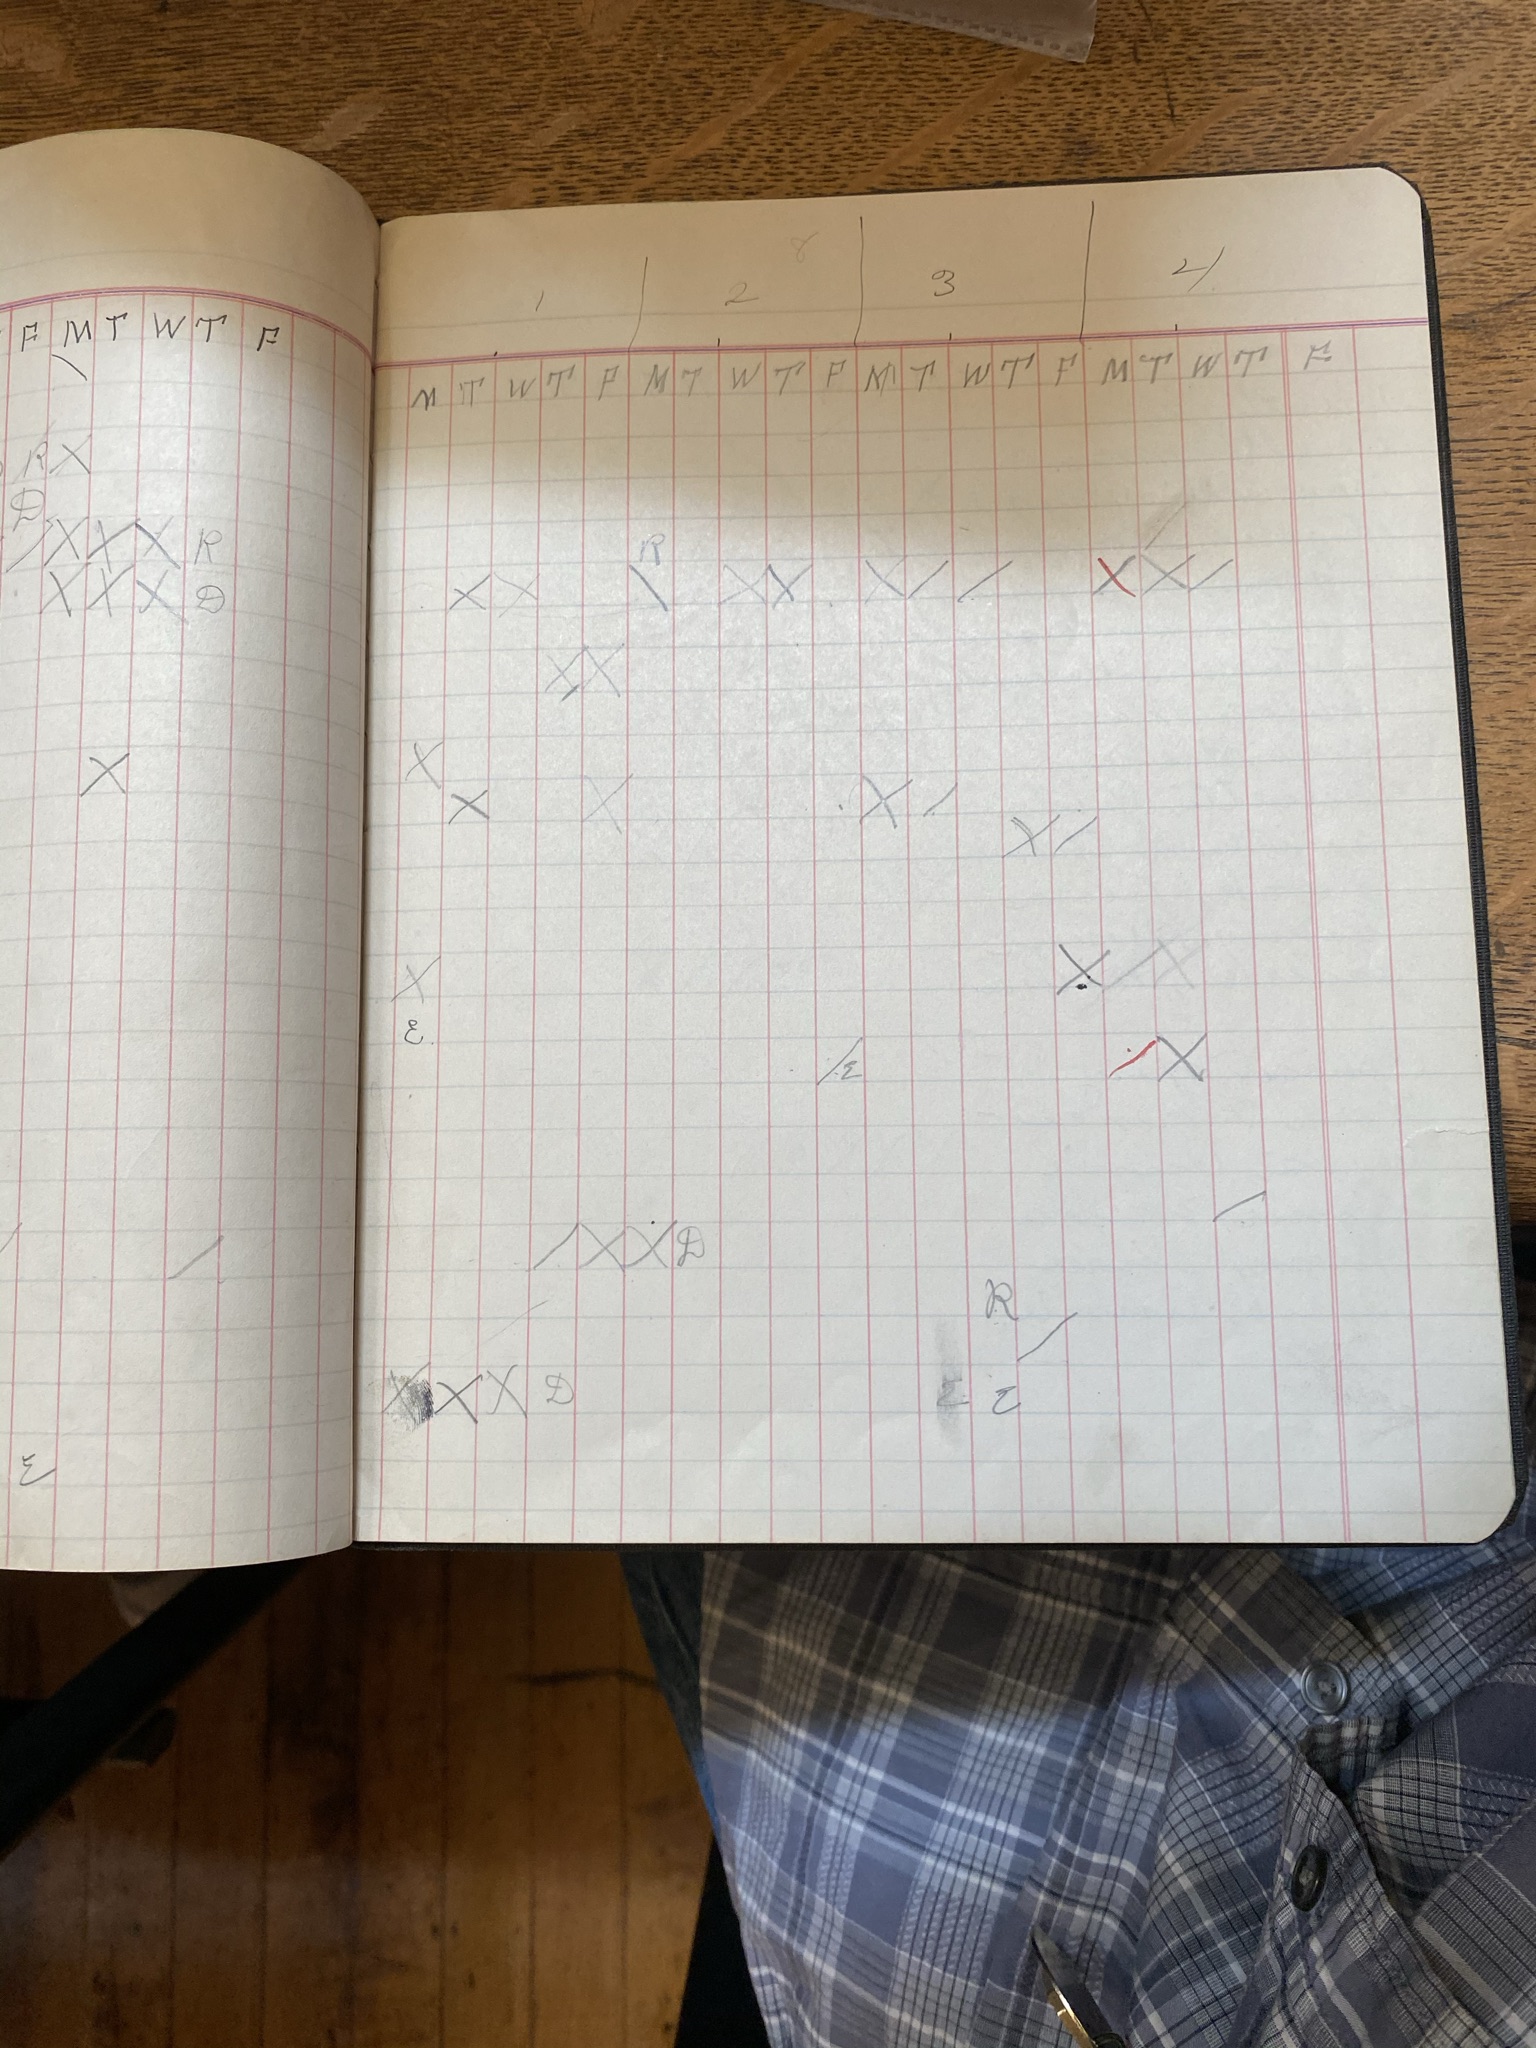 F M T W T F
\
R X
D
/ X X X R
X X X D
X
/ /
E
8
1 2 3 4
M T W T F M T W T F M T W T F M T W T F
R /
X X \ X X X / / X X /
X X
X
X X X /
X /
X X / X
E
/ E / X
/
/ X X D
R
/ /
X X X D E E